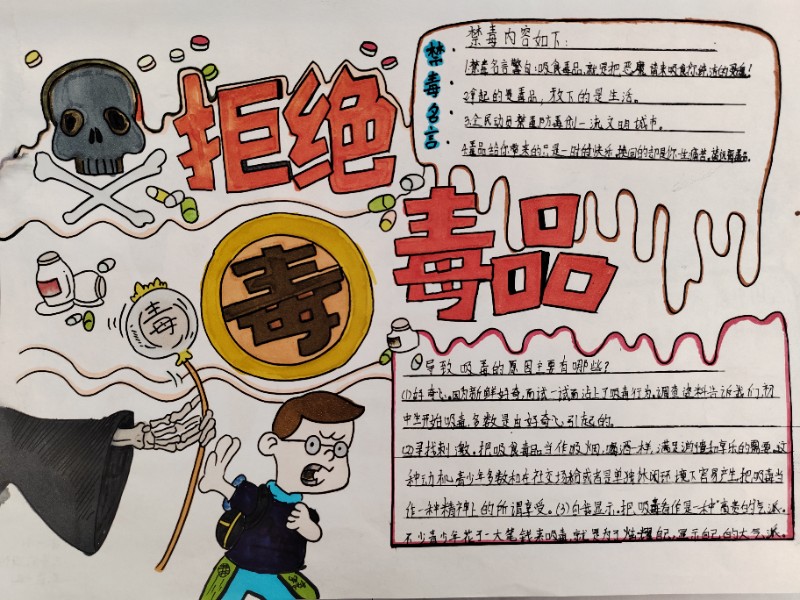 拒绝
毒品
禁毒名言
禁毒内容如下:
1.禁毒名言警句:吸食毒品,就是把恶魔请来吸食你鲜活的
2.拿起的是毒品,放下的是生活。
3.全民动员禁毒防毒创一流文明城市。
4.毒品给你带来的只是一时的快乐,换回的却是你一生痛苦,
毒
毒
导致吸毒的原因主要有哪些?
(1)好奇飞。因为新鲜好奇,而试一试而沾上了吸毒行为。调查资料告诉我们,初
中生开始吸毒,多数是由好奇飞引起的。
(2)寻找刺激。把吸食毒品当作吸烟、喝酒一样,满足消遣和享乐的需要。这
种动机,青少年多数和在社交场合或者是单独休闲环境下容易产生,把吸毒当
作一种精神上的所谓享受。(3)向去显示。把吸毒看作是一种"高贵的气派。
不少青少年花了一大笔钱来吸毒,就是为了炫耀自己,显示自己的大气派。